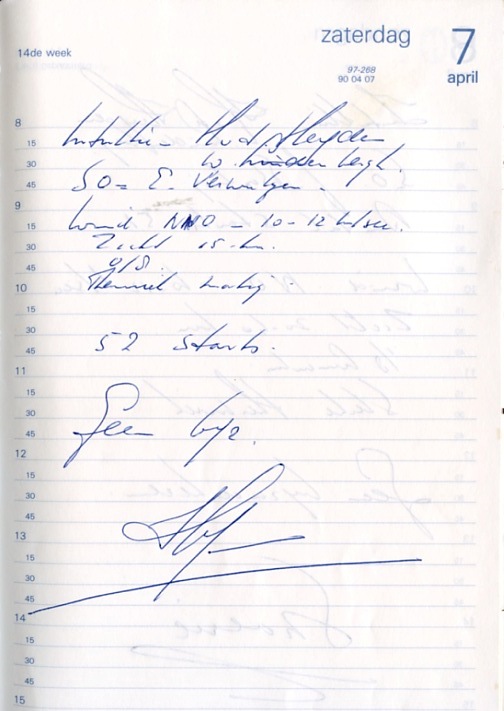 zaterdag 7
14de week
97-268
90 04 07
april
8
15
30
45
SO = E. Verweijen.
9
15
Wind NNO - 10-12 m/sec.
30
Zicht 15 km.
45
0/8.
10
Thermiek matig
15
30
45
52 starts.
11
15
30
45
Geen bijz.
12
15
30
45
13
15
30
45
14
15
30
45
15